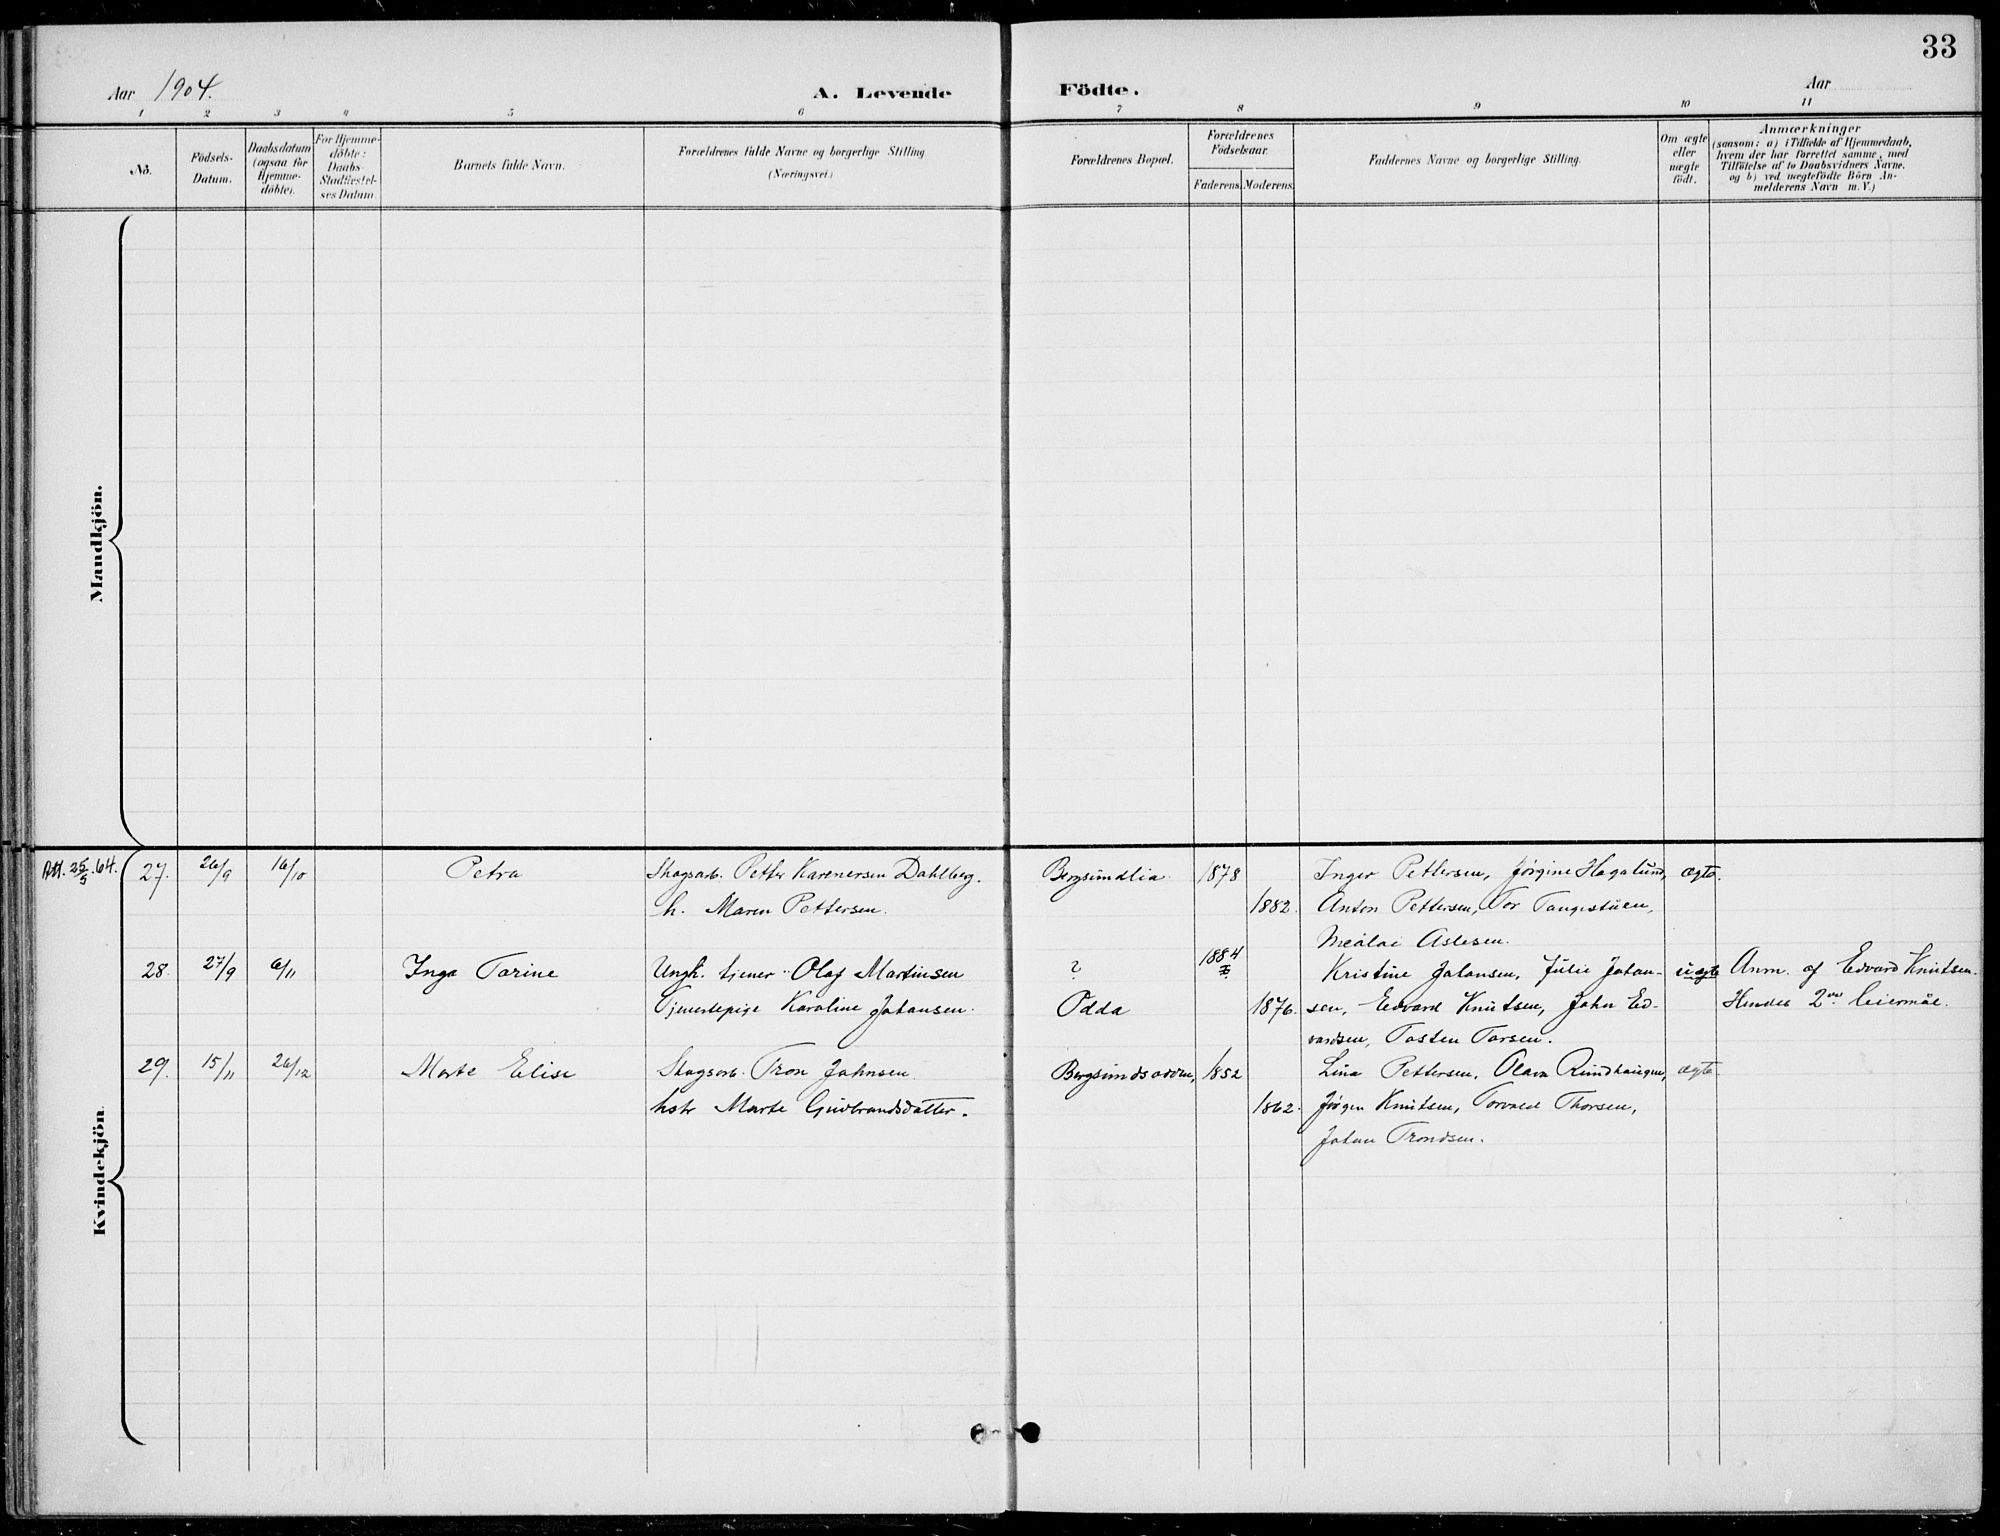 33
Aar 1904.
A. Levende Födte.
Aar
1 2 3 4 5 6 7 8 9 10 11
No.
Födsels-Datum.
Daabsdatum (ogsaa for Hjemme-döbte).
For Hjemme-döbte: Daabs-Stadfæstel-ses Datum.
Barnets fulde Navn.
Forældrenes fulde Navne og borgerlige Stilling
(Næringsvei.)
Forældrenes Bopæl.
Forældrenes Födselsaar.
Faderens. Moderens.
Faddernes Navne og borgerlige Stilling.
Om ægte eller uægte födt.
Anmærkninger
(saasom: a) i Tilfælde af Hjemmedaab,
hvem der har forrettet samme, med
Tilföielse af to Daabsvidners Navne.
og b) ved uægtefödte Börn An-
melderens Navn m. V.)
Mandkjön.
Kvindekjön.
Att. 25/5.64. 27. 26/9 16/10 Petra Skogsarb. Petter Karenersen Dahlberg. Bergsundlia 1878 Inger Pettersen, Jørgine Hagalund, ægte.
h. Maren Pettersen. 1882. Anton Pettersen, Tor Tangestuen,
Aslesen.
28. 27/9 6/11 Inga Torine Ungk. tjener Olaf Martinsen ? 1884 Kristine Johansen, Julie Johan- uægte Anm. af Edvard Knutsen.
Tjenestepige Karoline Johansen. Odda 1876. sen, Edvard Knutsen, John Ed- Hendes 2det leiermål.
vardsen, Tosten Torsen.
29. 15/11 26/12 Marte Elise Skogsarb. Tron Johnsen Bergsundsodden, 1852 Lina Pettersen, Olava Rundhaugen, ægte
hstr Marte Gudbrandsdatter. 1862. Jørgen Knutsen, Torvald Thorsen,
Johan Trondsen.